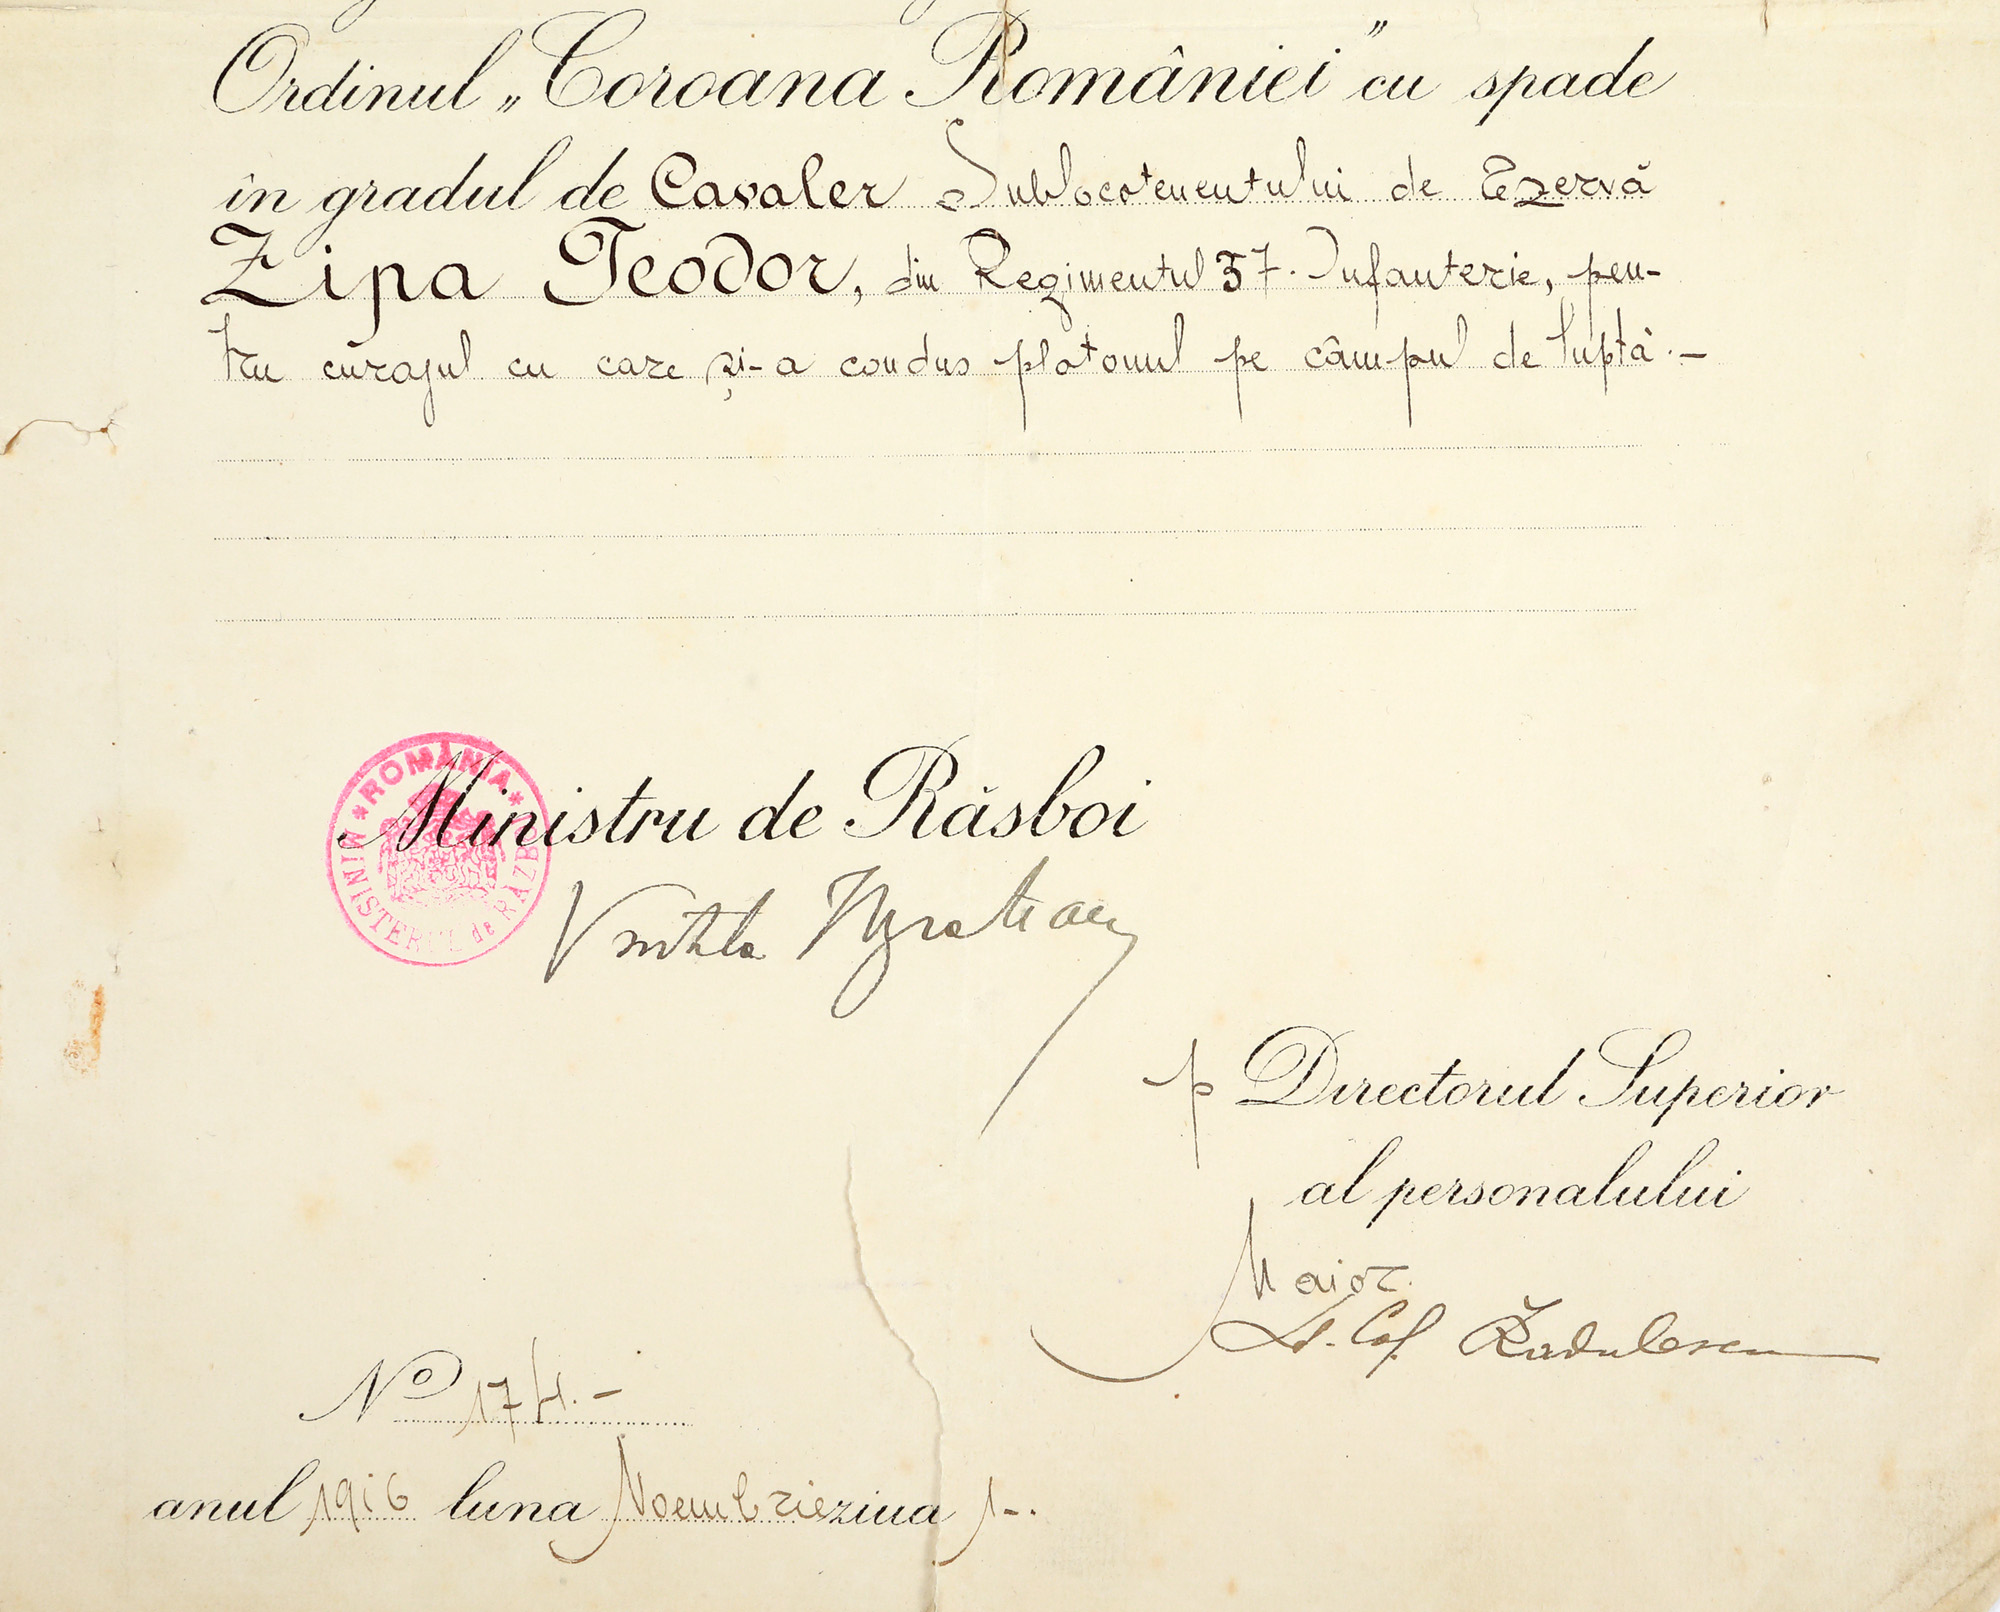 Ordinul „Coroana României” cu spade
în gradul de Cavaler Sublocotenentului de rezervă
Zipa Teodor, din Regimentul 37. Infanterie, pen-
tru curajul cu care și-a condus plotonul pe câmpul de luptă.—
* ROMÂNIA *
MINISTERUL de RĂZB
Ministru de Răsboi
Vintila Bratianu
p Directorul Superior
al personalului
Maior
Lt. Col. Radulescu
No 174.—
anul 1916 luna Noembrie ziua 1-.